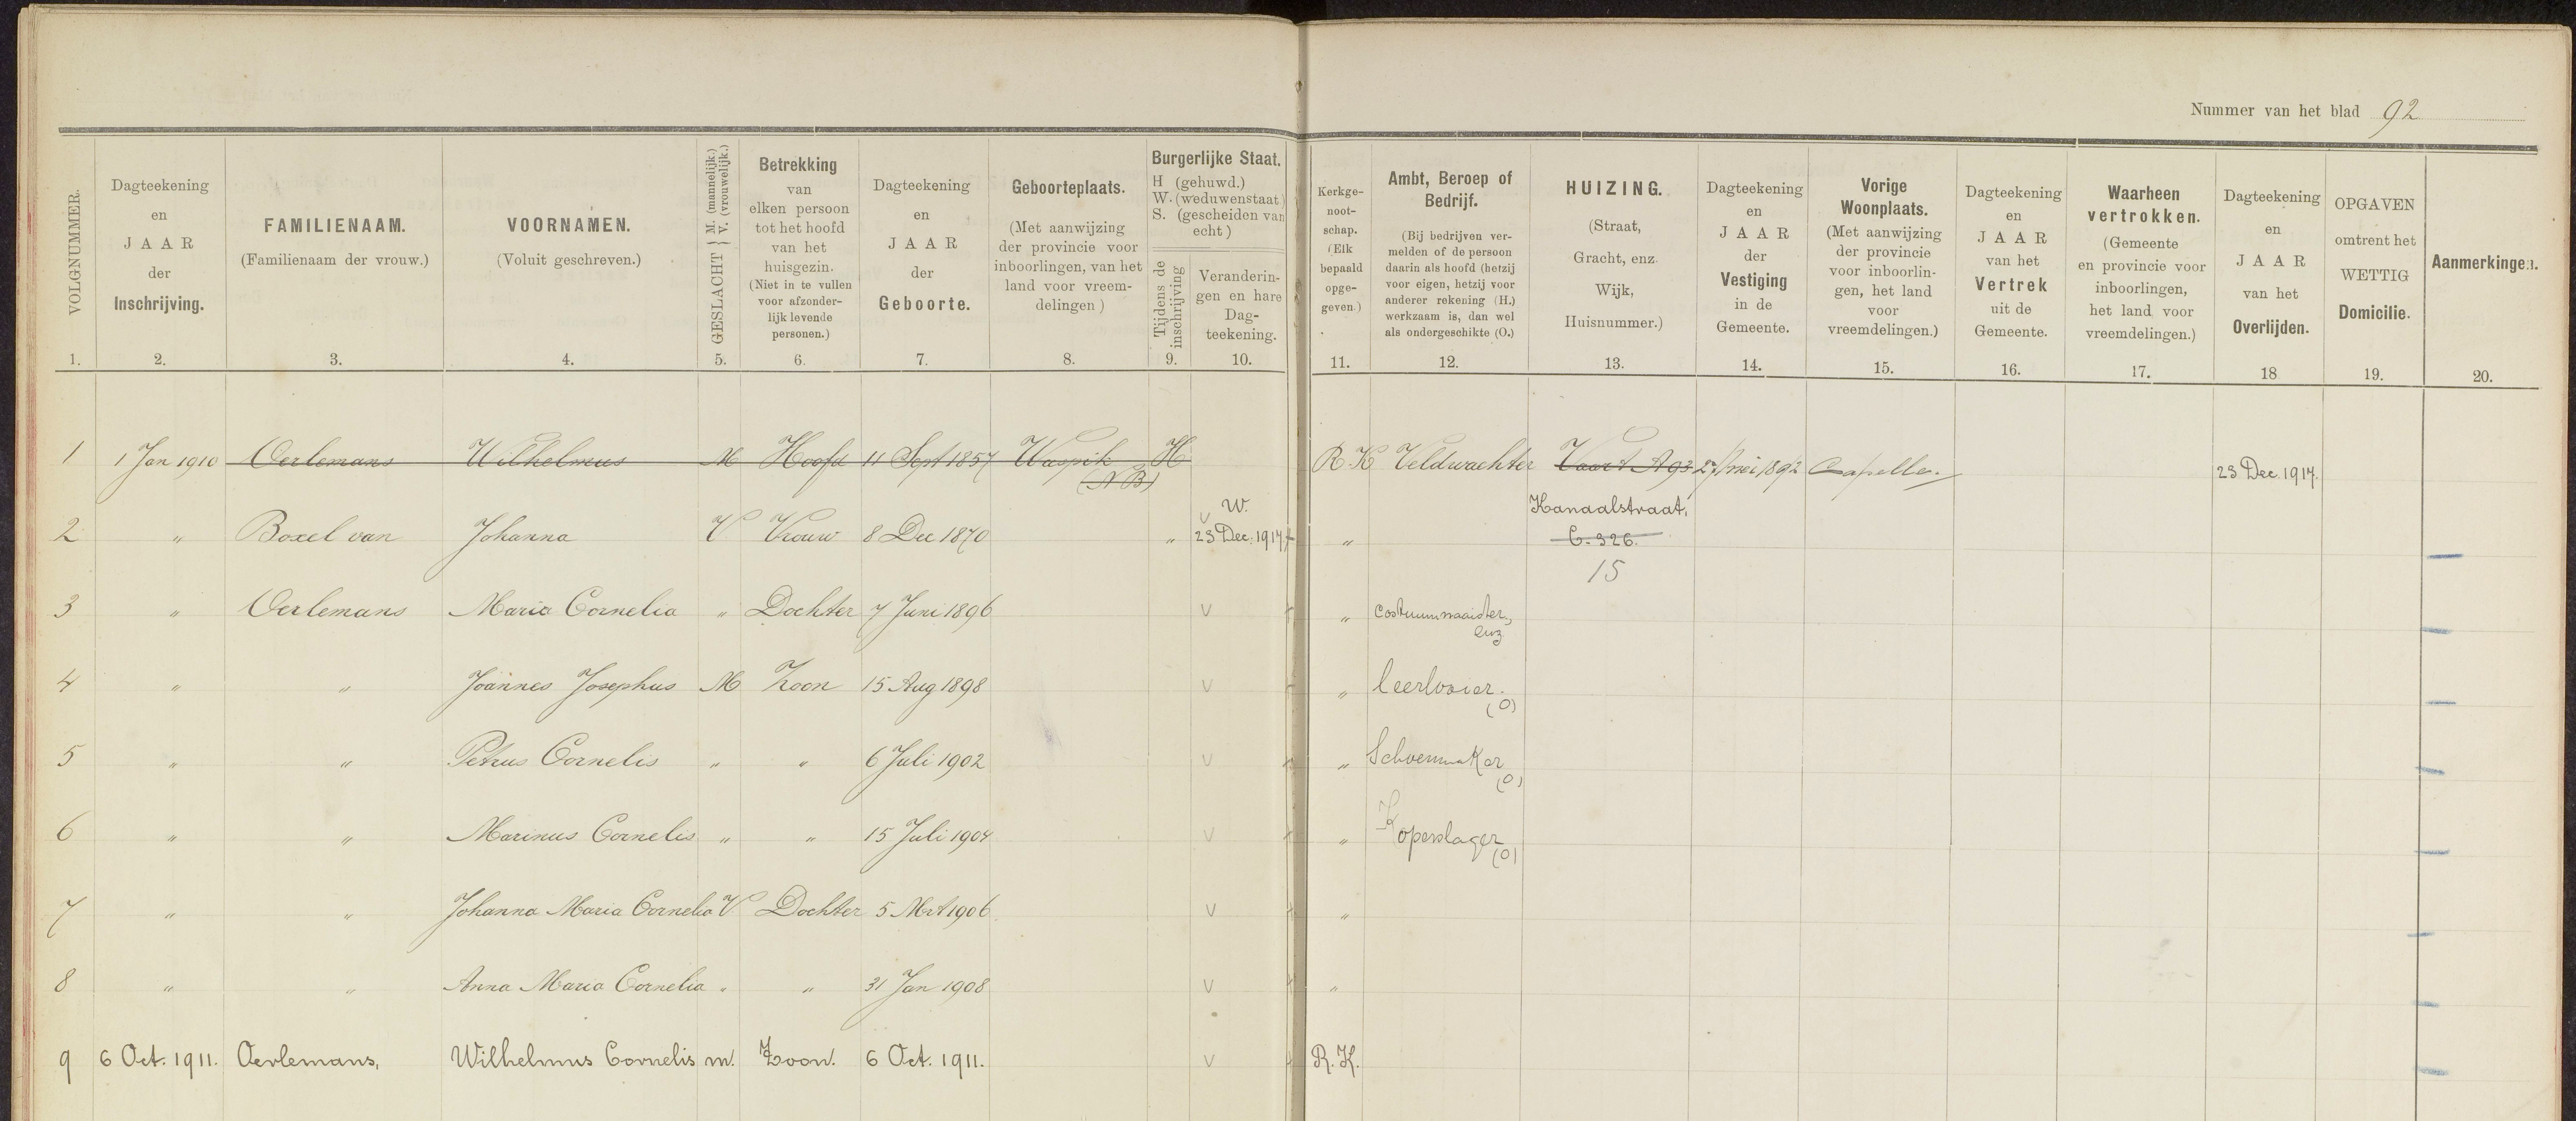 Nummer van het blad 92
VOLGNUMMER.
1.
Dagteekening
en
JAAR
der
Inschrijving.
2.
FAMILIENAAM.
(Familienaam der vrouw.)
3.
VOORNAMEN.
(Voluit geschreven.)
4.
GESLACHT { M. (mannelijk.)
V. (vrouwelijk.)
5.
Betrekking
van
elken persoon
tot het hoofd
van het
huisgezin.
(Niet in te vullen
voor afzonder-
lijk levende
personen.)
6.
Dagteekening
en
JAAR
der
Geboorte.
7.
Geboorteplaats.
(Met aanwijzing
der provincie voor
inboorlingen, van het
land voor vreem-
delingen)
8.
Burgerlijke Staat.
H (gehuwd.)
W. (weduwenstaat)
S. (gescheiden van
echt)
Tijdens de
inschrijving
9.
Veranderin-
gen en hare
Dag-
teekening.
10.
Kerkge-
noot-
schap.
(Elk
bepaald
opge-
geven.)
11.
Ambt, Beroep of
Bedrijf.
(Bij bedrijven ver-
melden of de persoon
daarin als hoofd (hetzij
voor eigen, hetzij voor
anderer rekening (H.)
werkzaam is, dan wel
als ondergeschikte (O.)
12.
HUIZING.
(Straat,
Gracht, enz.
Wijk,
Huisnummer.)
13.
Dagteekening
en
JAAR
der
Vestiging
in de
Gemeente.
14.
Vorige
Woonplaats.
(Met aanwijzing
der provincie
voor inboorlin-
gen, het land
voor
vreemdelingen.)
15.
Dagteekening
en
JAAR
van het
Vertrek
uit de
Gemeente.
16.
Waarheen
vertrokken.
(Gemeente
en provincie voor
inboorlingen,
het land voor
vreemdelingen.)
17.
Dagteekening
en
JAAR
van het
Overlijden.
18
OPGAVEN
omtrent het
WETTIG
Domicilie.
19.
Aanmerkingen.
20.
1 1 Jan 1910 Oerlemans Wilhelmus M Hoofd 11 Sept 1857 Waspik H R K Veldwachter Vaart A 93 27 mei 1892 Capelle. 23 Dec. 1917.
(N B)
W. Kanaalstraat,
2 " Boxel van Johanna V Vrouw 8 Dec 1870 " 23 Dec. 1917 " C. 326.
15
3 " Oerlemans Maria Cornelia " Dochter 7 Juni 1896 V " Costuumnaaister,
enz
4 " " Joännes Josephus M Zoon 15 Aug 1898 V " leerlooier.
(O)
5 " " Petrus Cornelis " " 6 Juli 1902 V " Schoenmaker
(O)
6 " " Marinus Cornelis " " 15 Juli 1904 V " Koperslager
(O)
7 " " Johanna Maria Cornelia V Dochter 5 Mrt 1906 V "
8 " " Anna Maria Cornelia " " 31 Jan 1908 V "
9 6 Oct. 1911. Oerlemans, Wilhelmus Cornelis m. Zoon. 6 Oct. 1911. V R. K.